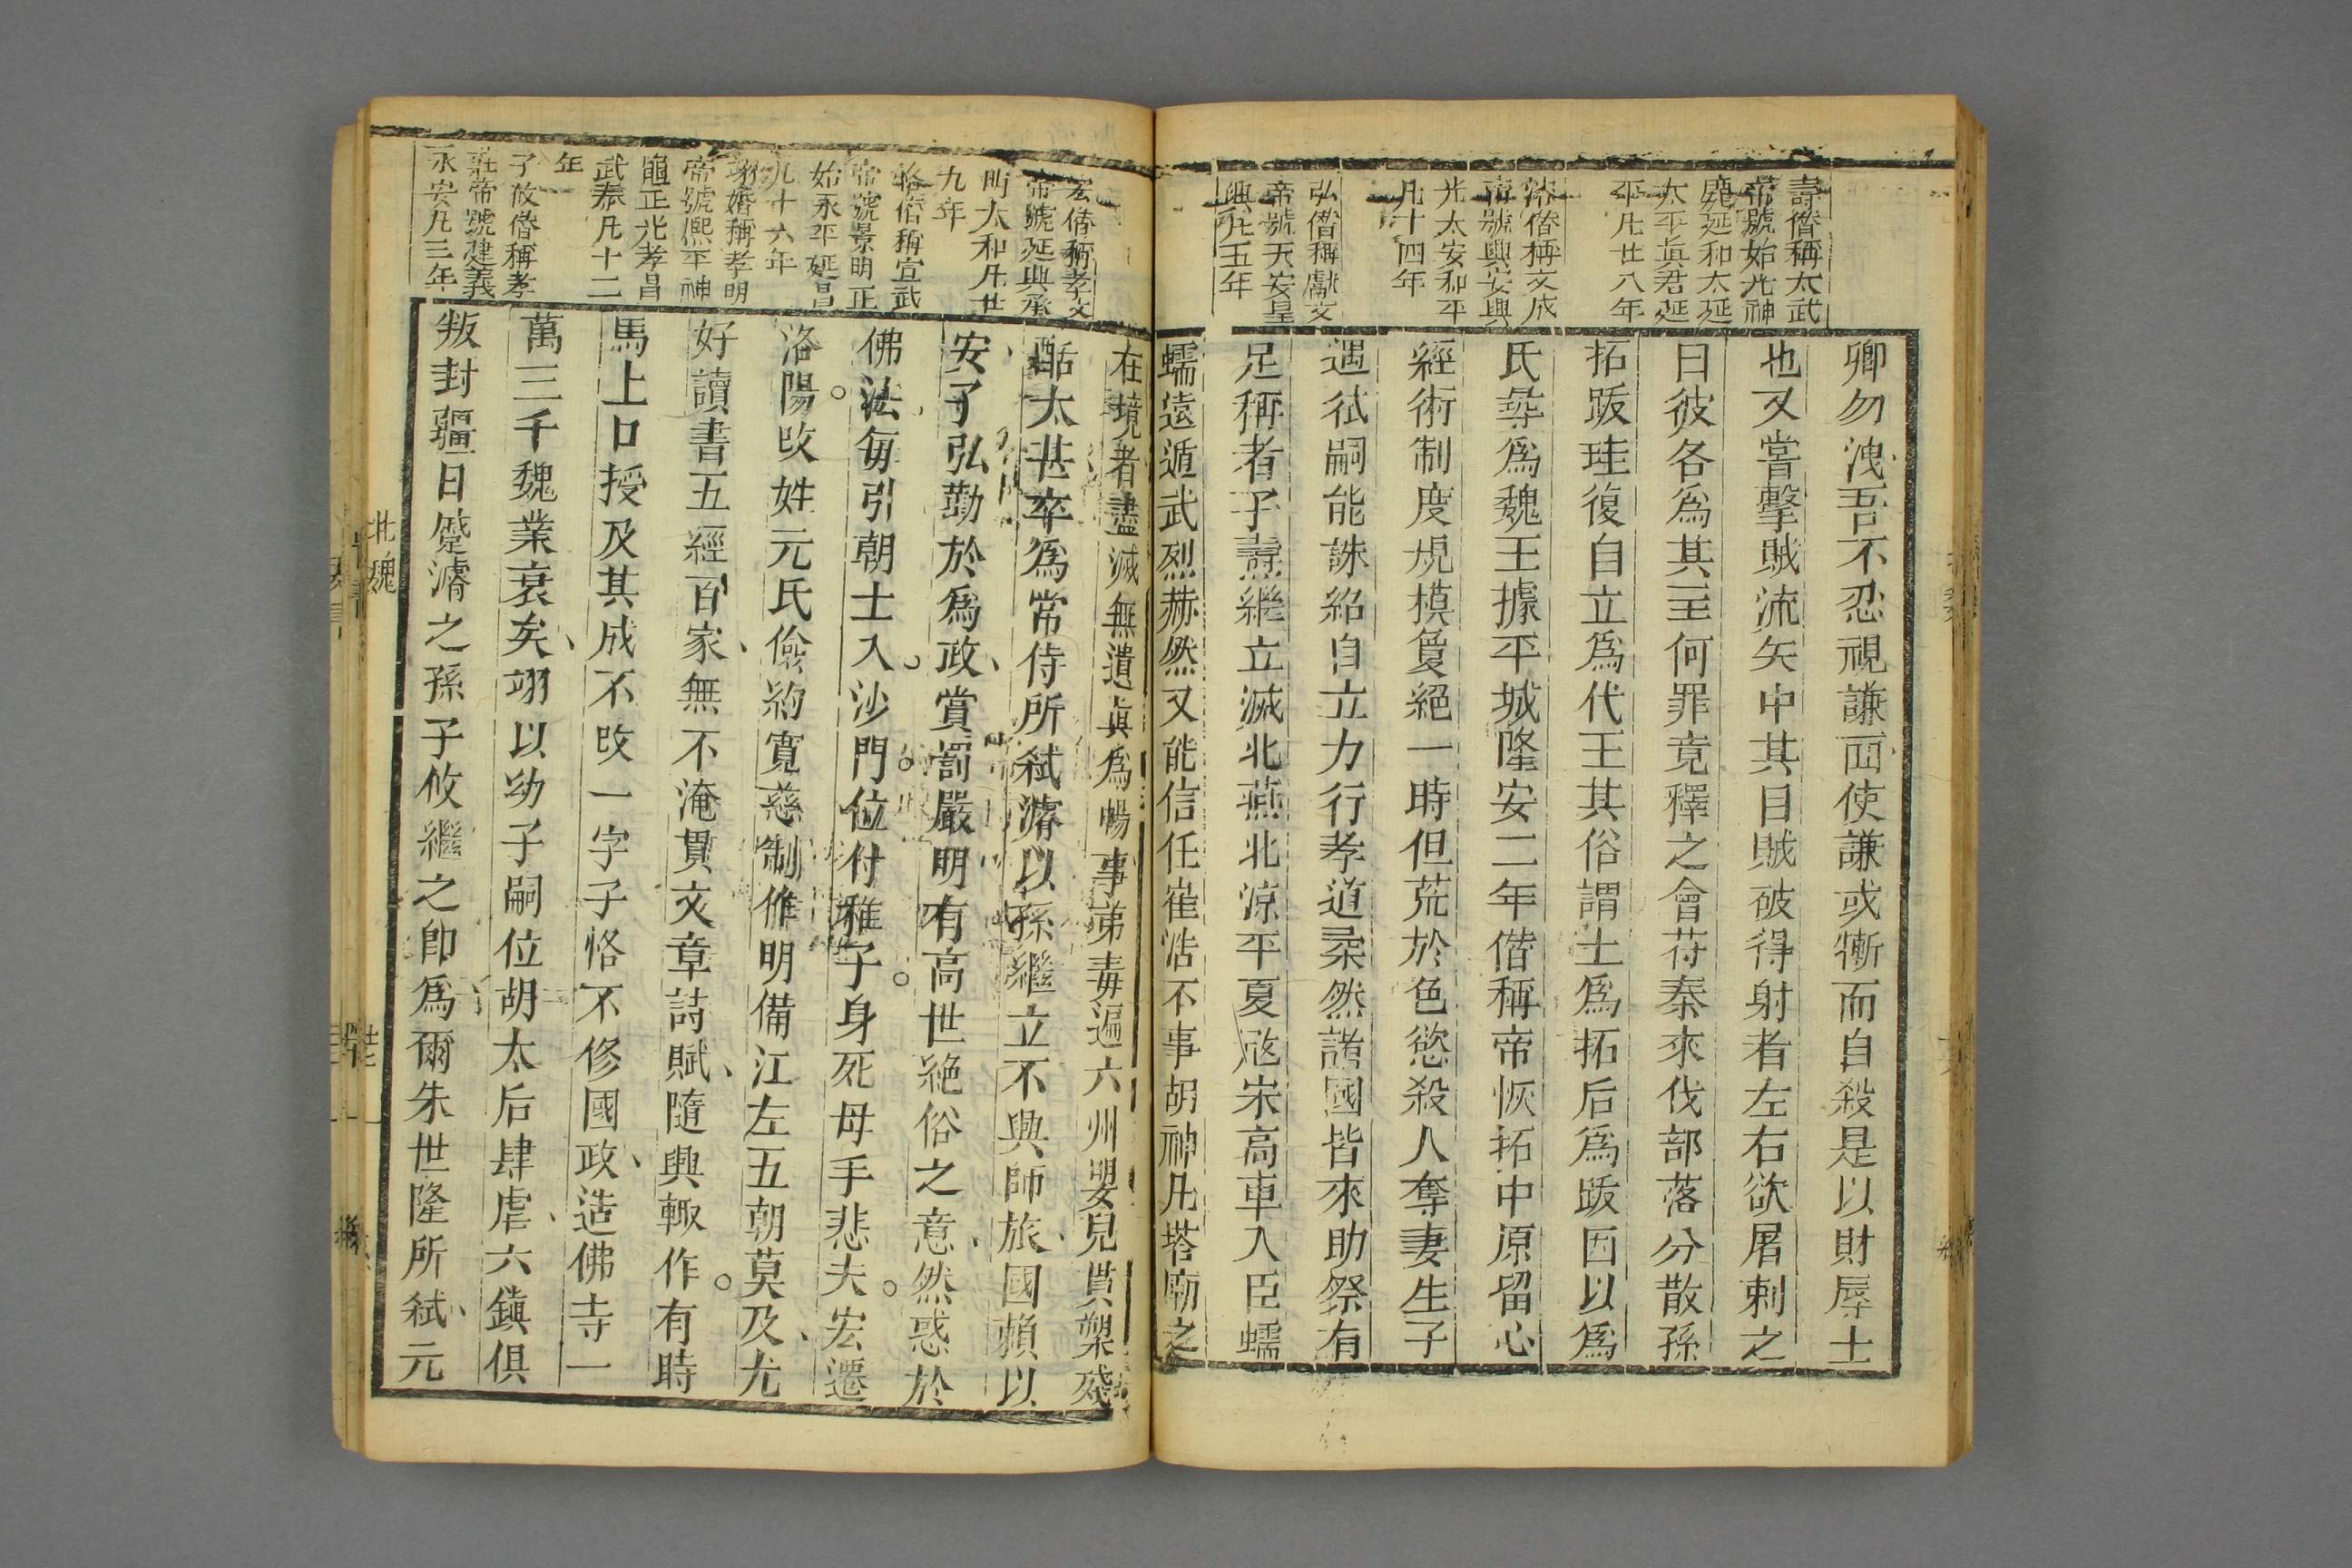 燾僭稱太武
帝號始光神
䴥延和太延
太平眞君延
平凡廿八年
濬僭稱文成
帝號興安興
光太安和平
凡十四年
弘僭稱獻文
帝號天安皇
興凡五年
卿勿洩吾不忍視謙面使謙或慚而自殺是以財辱士
也又嘗擊賊流矢中其目賊破得射者左右欲屠剌之
曰彼各爲其主何罪竟釋之會苻秦來伐部落分散孫
拓跋珪復自立爲代王其俗謂土爲拓后爲跋因以爲
氏尋爲魏王據平城隆安二年僭稱帝恢拓中原留心
經術制度規模夐絕一時但荒於色慾殺人奪妻生子
遇弑嗣能誅紹自立力行孝道柔然諸國皆來助祭有
足稱者子燾繼立滅北燕北涼平夏宼宋高車入臣蠕
蠕遠遁武烈赫然又能信任崔浩不事胡神凡塔廟之
宏僭稱孝文
帝號延興承
明太和凡廿
九年
恪僭稱宣武
帝號景明正
始永平延昌
凡十六年
翊僭稱孝明
帝號熙平神
龜正光孝昌
武泰凡十二
年
子攸僭稱孝
莊帝號建義
永安凡三年
在境者盡滅無遺眞爲暢事弟毒遍六州嬰兒貫槊殘
酷太甚卒爲常侍所弑濬以孫繼立不興師旅國頼以
安子弘勤於爲政賞罰嚴明有高世絶俗之意然惑於
佛法每引朝士入沙門位付稚子身死母手悲夫宏遷
洛陽改姓元氏儉約寬慈制作明備江左五朝莫及尤
好讀書五經百家無不淹貫文章詩賦隨興輙作有時
馬上口授及其成不改一字子恪不修國政造佛寺一
萬三千魏業衰矣翊以幼子嗣位胡太后肆虐六鎭俱
叛封疆日蹙濬之孫子攸繼之卽爲爾朱世隆所弑元
北魏